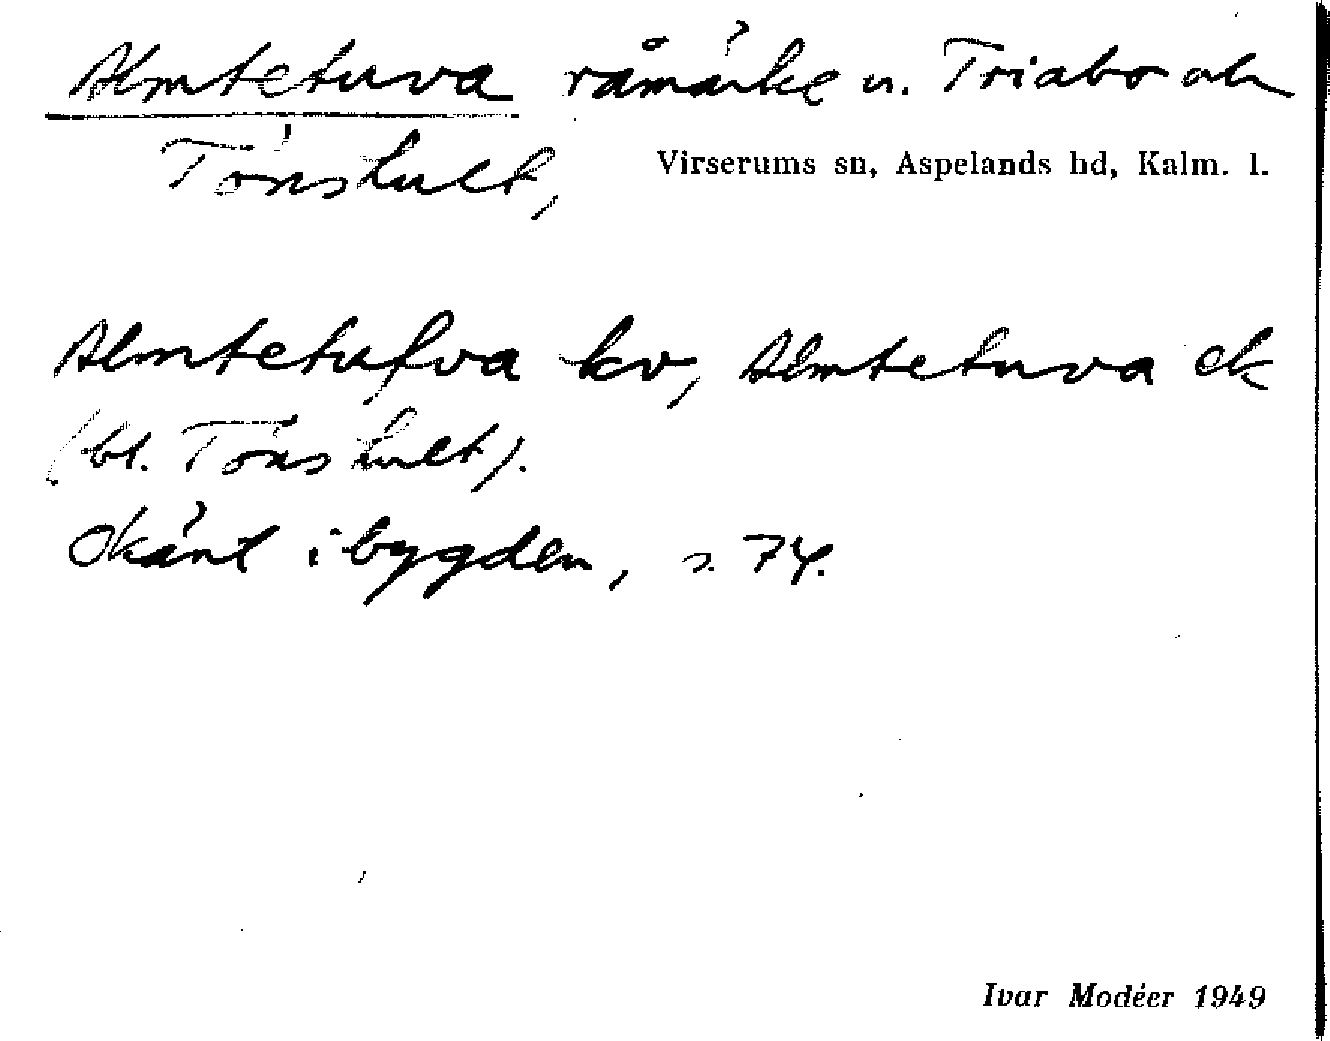 Almtetuva råmärke u. Triabo och
Tönshult,
Virserums sn, Aspelands hd, Kalm. l.
Almtetufva kv, Almtetuva ek
(bl. Tönshult).
Okänt i bygden, s. 74.
Ivar Modéer 1949